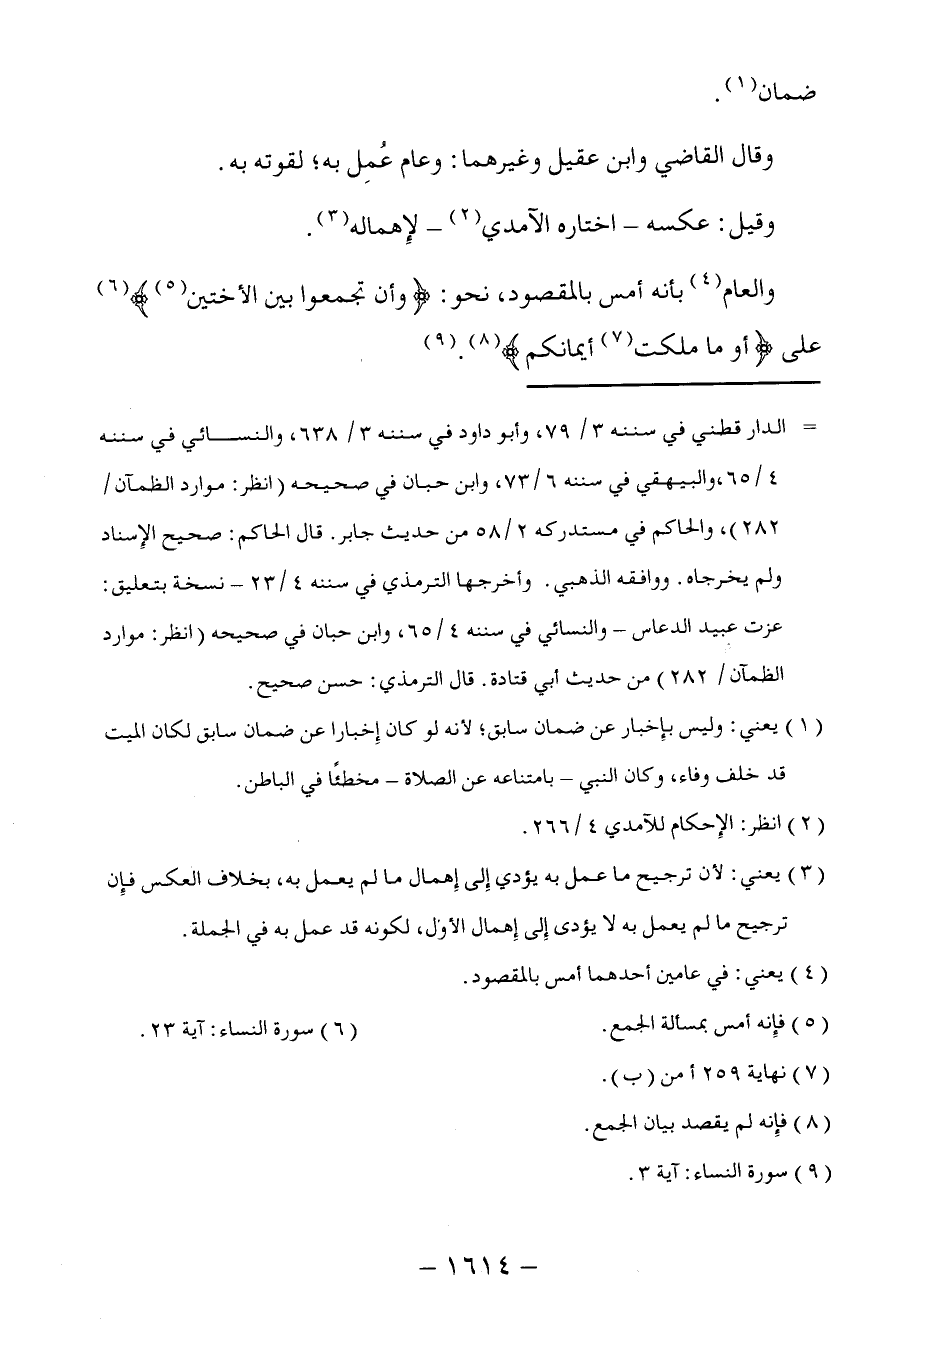 ضمان(١).
وقال القاضي وابن عقيل وغيرهما: وعام عُمِل به؛ لقوته به.
وقيل: عكسه – اختاره الآمدي(٢) – لإهماله(٣).
والعام(٤) بأنه أمس بالمقصود، نحو: ﴿وأن تجمعوا بين الأختين(٥)﴾(٦)
على ﴿أو ما ملكت(٧) أيمانكم﴾(٨).(٩)
= الدار قطني في سننه ٣/ ٧٩، وأبو داود في سننه ٣/ ٦٣٨، والنسائي في سننه
٤/ ٦٥،والبيهقي في سننه ٦/ ٧٣، وابن حبان في صحيحه (انظر: موارد الظمآن/
٢٨٢)، والحاكم في مستدركه ٢/ ٥٨ من حديث جابر. قال الحاكم: صحيح الإسناد
ولم يخرجاه. ووافقه الذهبي. وأخرجها الترمذي في سننه ٤/ ٢٣ – نسخة بتعليق:
عزت عبيد الدعاس – والنسائي في سننه ٤/ ٦٥، وابن حبان في صحيحه (انظر: موارد
الظمآن/ ٢٨٢) من حديث أبي قتادة. قال الترمذي: حسن صحيح.
(١) يعني: وليس بإخبار عن ضمان سابق؛ لأنه لو كان إخبارا عن ضمان سابق لكان الميت
قد خلف وفاء، وكان النبي – بامتناعه عن الصلاة – مخطئًا في الباطن.
(٢) انظر: الإحكام للآمدي ٤/ ٢٦٦.
(٣) يعني: لأن ترجيح ما عمل به يؤدي إلى إهمال ما لم يعمل به، بخلاف العكس فإن
ترجيح ما لم يعمل به لا يؤدى إلى إهمال الأول، لكونه قد عمل به في الجملة.
(٤) يعني: في عامين أحدهما أمس بالمقصود.
(٥) فإنه أمس بمسألة الجمع. (٦) سورة النساء: آية ٢٣.
(٧) نهاية ٢٥٩ أ من (ب).
(٨) فإنه لم يقصد بيان الجمع.
(٩) سورة النساء: آية ٣.
– ١٦١٤ –